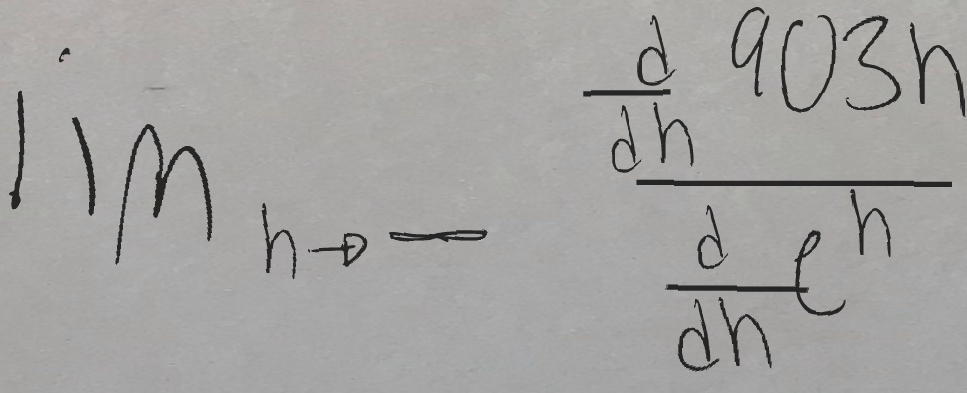 lim h→− d/dh 903h / d/dh e^h